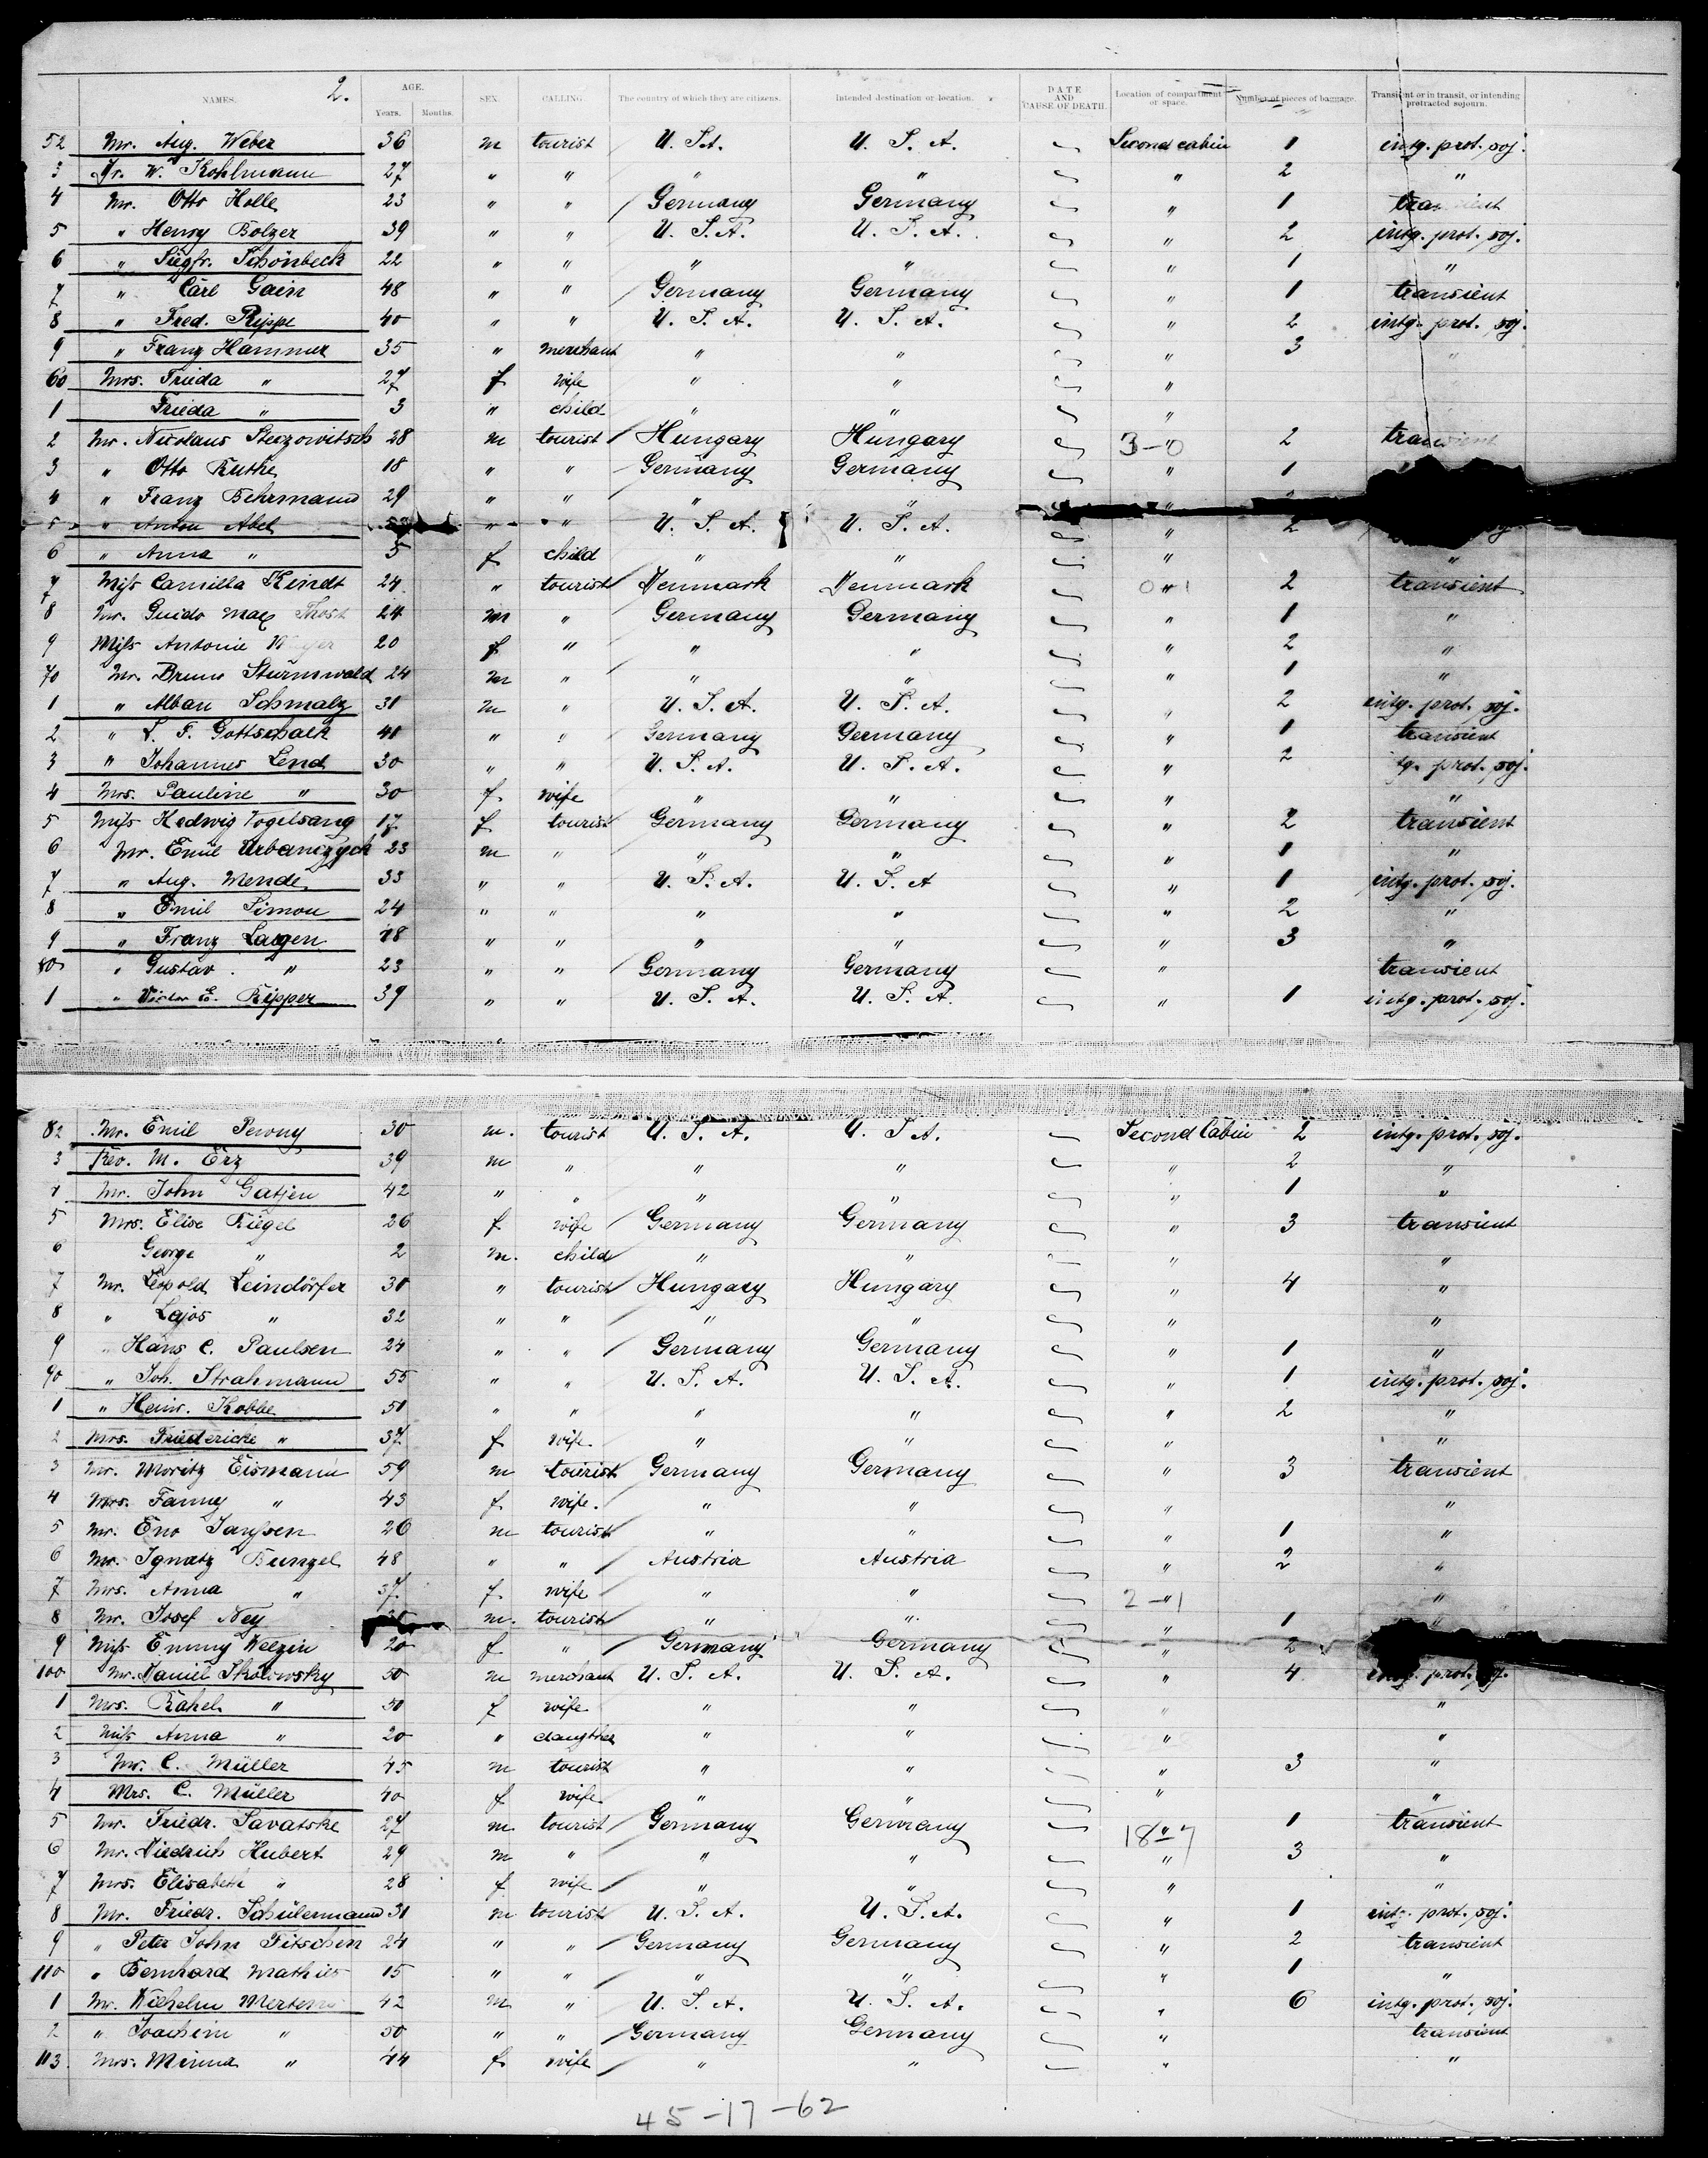 2.
NAMES. AGE. Years. Months. SEX. CALLING. The country of which they are citizens. Intended destination or location. DATE AND CAUSE OF DEATH. Location of compartment or space. Number of pieces of baggage. Transient or in transit, or intending protracted sojourn.
52 Mr. Aug. Weber 36 m tourist U. S. A. U. S. A. Second cabin 1 intg. prot. soj.
3 Fr. W. Kohlmann 27 " " " " " 2 "
4 Mr. Otto Holle 23 " " Germany Germany " 1 transient
5 " Henry Bolzer 39 " " U. S. A. U. S. A. " 2 intg. prot. soj.
6 " Siegfr. Schönbeck 22 " " " " " 1 "
7 " Carl Gain 48 " " Germany Germany " 1 transient
8 " Fred. Rippe 40 " " U. S. A. U. S. A. " 2 intg. prot. soj.
9 " Franz Hammer 35 " merchant " " " 3 "
60 Mrs. Frieda " 27 f wife " " "
1 Frieda " 3 " child " " "
2 Mr. Nicolaus Sterzowitsch 28 m tourist Hungary Hungary 3-0 " 2 transient
3 " Otto Ruthe 18 " " Germany Germany " 1
4 " Franz Behrmann 29 " " " " "
5 " Anton Abel " " U. S. A. U. S. A. " 2
6 " Anna " 5 f child " " " "
7 Miss Camilla Kindt 24 " tourist Denmark Denmark 0-1 " 2 transient
8 Mr. Guido Max Thost 24 m " Germany Germany " 1 "
9 Miss Antonie 20 f " " " " 2 "
70 Mr. Bruno Sturmwald 24 m " " " " 1 "
1 " Alban Schmalz 31 m " U. S. A. U. S. A. " 2 intg. prot. soj.
2 " L. F. Gottschalk 41 " " Germany Germany " 1 transient
3 " Johannes Lend 30 " " U. S. A. U. S. A. " 2 intg. prot. soj.
4 Mrs. Pauline " 30 f. wife " " " "
5 Miss Hedwig Vogelsang 17 f tourist Germany Germany " 2 transient
6 Mr. Emil Urbanczyck 23 m " " " " 1 "
7 " Aug. Mende 33 " " U. S. A. U. S. A " 1 intg. prot. soj.
8 " Emil Simon 24 " " " " " 2 "
9 " Franz Laugen 28 " " " " " 3 "
80 " Gustav " 23 " " Germany Germany " transient
1 " Victor E. Ripper 39 " " U. S. A. U. S. A. " 1 intg. prot. soj.
82 Mr. Emil Perony 30 m. tourist U. S. A. U. S A. Second Cabin 2 intg. prot. soj.
3 Rev. M. Erz 39 m " " " " 2 "
4 Mr. John Gatjen 42 " " " " " 1 "
5 Mrs. Elise Riegel 26 f wife Germany Germany " 3 transient
6 George " 2 m. child " " " "
7 Mr. Leopold Leindörfer 30 " tourist Hungary Hungary " 4 "
8 " Lajos " 32 " " " " " "
9 " Hans C. Paulsen 24 " " Germany Germany " 1 "
90 " Joh. Strahmann 55 " " U. S. A. U. S. A. " 1 intg. prot. soj.
1 " Heinr. Kobbe 51 " " " " " 2 "
2 Mrs. Friedericke " 37 f wife " " " "
3 Mr. Moritz Eismann 59 m tourist Germany Germany " 3 transient
4 Mrs. Fanny " 43 f wife. " " " "
5 Mr. Eno Janssen 26 m tourist " " " 1 "
6 Mr. Ignatz Bunzel 48 " " Austria Austria " 2 "
7 Mrs. Anna " 37 f. wife " " 2-1 " "
8 Mr. Josef Ney m. tourist " " " 1 "
9 Miss Emmy Welzin 20 f " Germany Germany " 2
100 Mr. Daniel Skolowsky 50 m merchant U. S. A. U. S. A. " 4 intg. prot. soj.
1 Mrs. Rahel " 50 f wife " " " "
2 Miss Anna " 20 " daughter " " " "
3 Mr. C. Müller 45 m tourist " " " 3 "
4 Mrs. C. Müller 40 f wife " " " "
5 Mr. Friedr. Savatske 27 m tourist Germany Germany 18-7 " 1 transient
6 Mr. Diedrich Hubert 29 m " " " " 3 "
7 Mrs. Elisabeth " 28 f wife " " " "
8 Mr. Friedr. Schülermann 31 m tourist U. S. A. U. S. A. " 1 intg. prot. soj.
9 " Peter John Fitschen 24 " " Germany Germany " 2 transient
110 " Bernhard Mathies 15 " " " " " 1 "
1 Mr. Wilhelm Mertens 42 m " U. S. A. U. S. A. " 6 intg. prot. soj.
2 " Joachim " 50 " " Germany Germany " transient
113 Mrs. Minna " 44 f wife " " " "
45-17-62